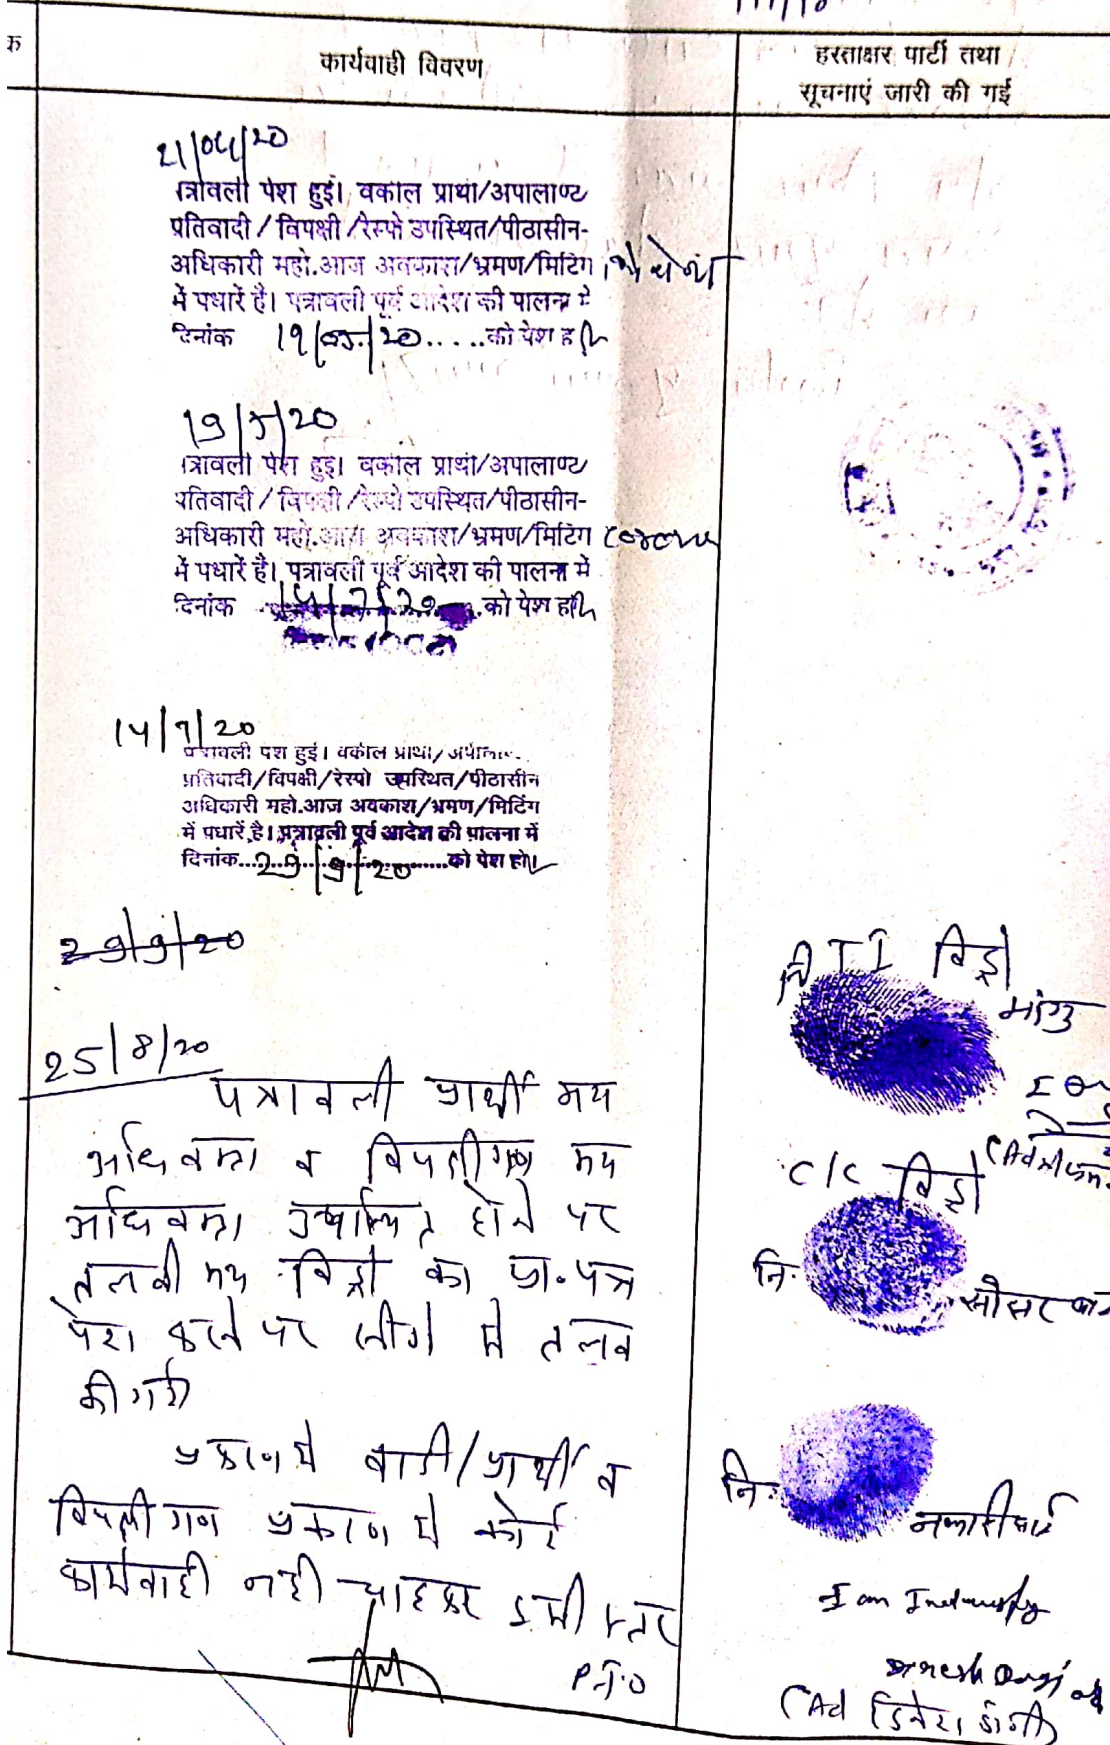 क
कार्यवाही विवरण
हस्ताक्षर पार्टी तथा
सूचनाएं जारी की गई
21/04/20
त्रावली पेश हुई। वकील प्रार्थी/अपीलाण्ट
प्रतिवादी / विपक्षी /रेस्पो उपस्थित/पीठासीन-
अधिकारी महो.आज अवकाश/भ्रमण/मिटिंग
में पधारें है। पत्रावली पूर्व आदेश की पालना में
दिनांक 19/05/20.....को पेश हो।
19/5/20
त्रावली पेश हुई। वकील प्रार्थी/अपीलाण्ट
प्रतिवादी / विपक्षी /रेस्पो उपस्थित/पीठासीन-
अधिकारी महो.आज अवकाश/भ्रमण/मिटिंग corona
में पधारें है। पत्रावली पूर्व आदेश की पालना में
दिनांक 14/7/20 को पेश हो।
14/7/20
पत्रावली पेश हुई। वकील प्रार्थी/अपीलाण्ट
प्रतिवादी/विपक्षी/रेस्पो उपस्थित/पीठासीन
अधिकारी महो.आज अवकाश/भ्रमण/मिटिंग
में पधारें है। पत्रावली पूर्व आदेश की पालना में
दिनांक...29/9/20...को पेश हो।
29/9/20
25/8/20
पत्रावली प्रार्थी मय
अधिवक्ता व विपक्षीगण मय
अधिवक्ता उपस्थित होने पर
तलबी मय विड्रो का प्रा.पत्र
पेश करने पर लीगे में तलब
की गई
प्रकरण में वादी/प्रार्थी व
विपक्षीगण प्रकरण में कोई
कार्यवाही नहीं चाहकर इसी स्तर
P.T.O
नि TI विड्रो
मांगु
C/C विड्रो
नि.
नि.
I am
Dinesh Dangi
(Ad दिनेश डांगी)